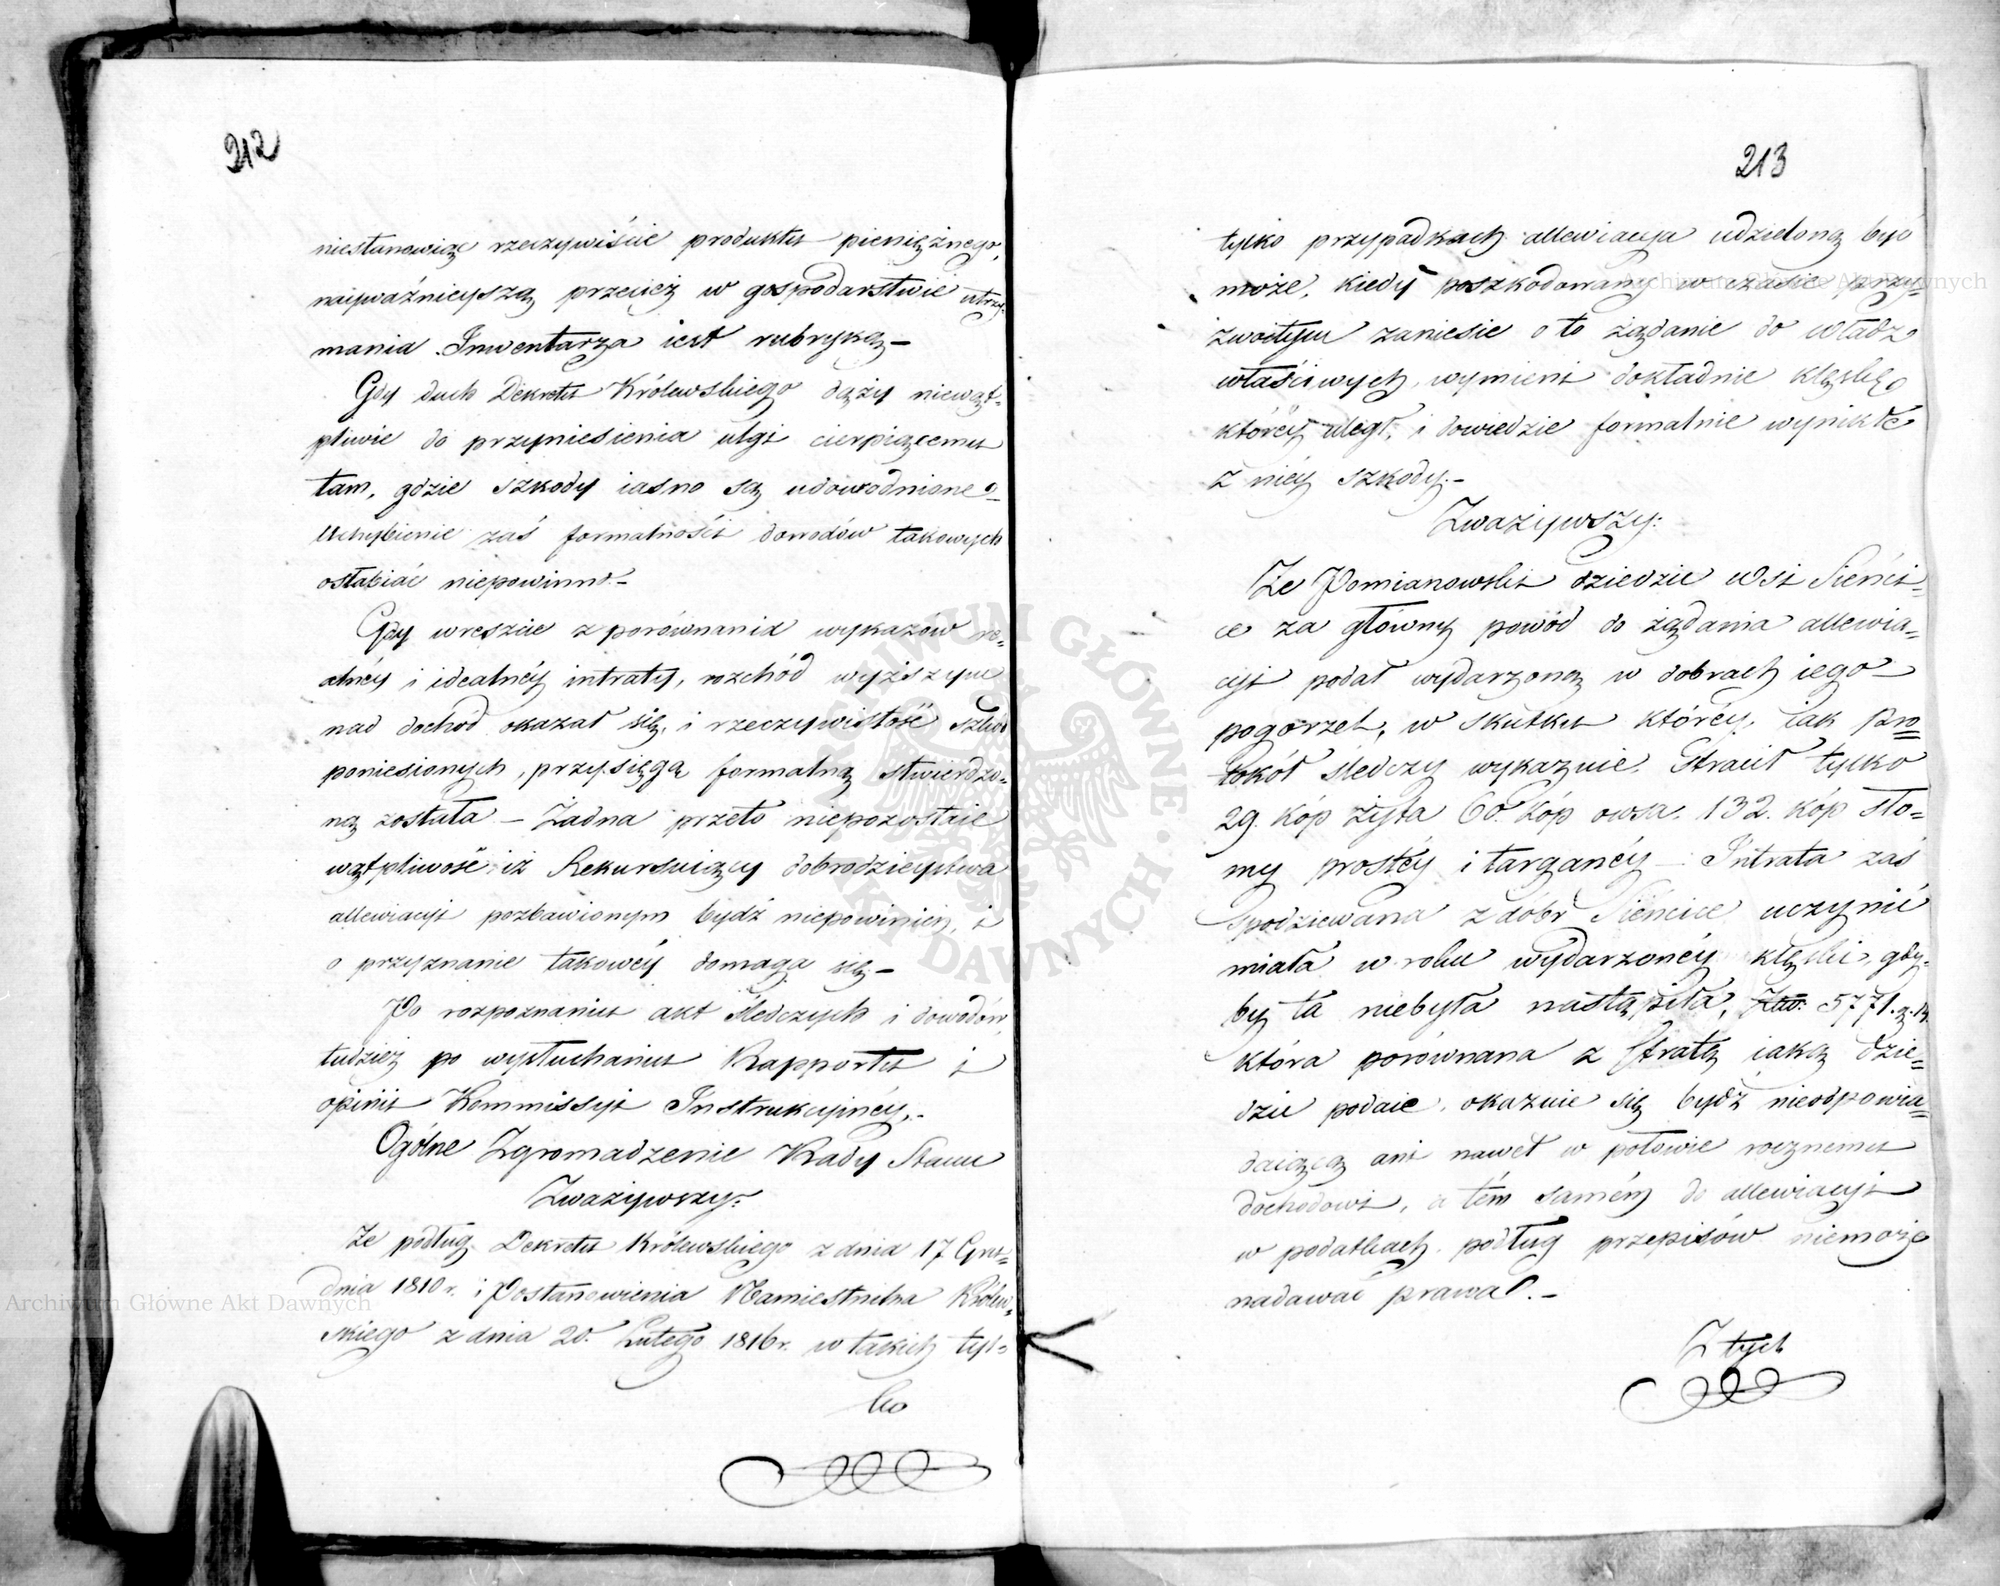 212
niestanowiąc rzeczywiście produktu pieniężnego,
najważnieyszą przecież w gospodarstwie utrzy-
mania Inwentarza iest rubryką –
Gdy duch Dekretu Królewskiego dąży niewąt-
pliwie do przyniesienia ulgi cierpiącemu
tam, gdzie szkody iasno są udowodnione
Uchybienie zaś formalności dowodów takowych
osłabiać niepowinno. –
Gdy wreszcie z porównania wykazów re-
alnéy i idealnéy intraty, rozchód wyższym
nad dochód okazał się, i rzeczywistość szkód
poniesionych, przysięgą formalną stwierdzo-
ną została – Żadna przeto niepozostaie
wątpliwość iż Rekursuiący dobrodzieystwa
allewiacyi pozbawionym bydź niepowinien, i
o przyznanie takowéy domaga się –
Po rozpoznaniu akt śledczych i dowodów
tudzież po wysłuchaniu Rapportu i
opinii Kommissyi Instrukcyinéy. –
Ogólne Zgromadzenie Rady Stanu
Zważywszy:
Że podług Dekretu Królewskiego z dnia 17 Gru-
dnia 1810 r. i Postanowienia Namiestnika Królew-
skiego z dnia 20. Lutego 1816 r. w takich tyl-
ko
213
tylko przypadkach allewiacya udzieloną być
może, kiedy poszkodowany w czasie przy-
zwoitym zaniesie o to żądanie do władz
właściwych, wymieni dokładnie klęskę
któréy uległ, i dowiedzie formalnie wynikłe
z niéy szkody. –
Zważywszy:
Że Pomianowski dziedzic wsi Sieńci-
ce za główny powód do żądania allewia-
cyi podał wydarzoną w dobrach iego
pogorzel, w skutku któréy, iak pro
tokół śledczy wykazuie. Stracił tylko
29. kóp żyta 60. kóp owsa. 132. kóp sło-
my prostéy i targanéy – Intrata zaś
spodziewana z dóbr Sieńcice uczynić
miała w roku wydarzonéy klęski, gdy-
by ta niebyła nastąpiła, 5771.
która porównana z stratą iaką dzie-
dzic podaie, okazuie się bydź nieodpowia-
daiącą ani nawet w połowie rocznemu
dochodowi, a tém samém do allewiacyi
w podatkach podług przepisów niemoże
nadawać prawa. –
Z tych
Archiwum Główne Akt Dawnych
Archiwum Główne Akt Dawnych
ARCHIWUM GŁÓWNE AKT DAWNYCH